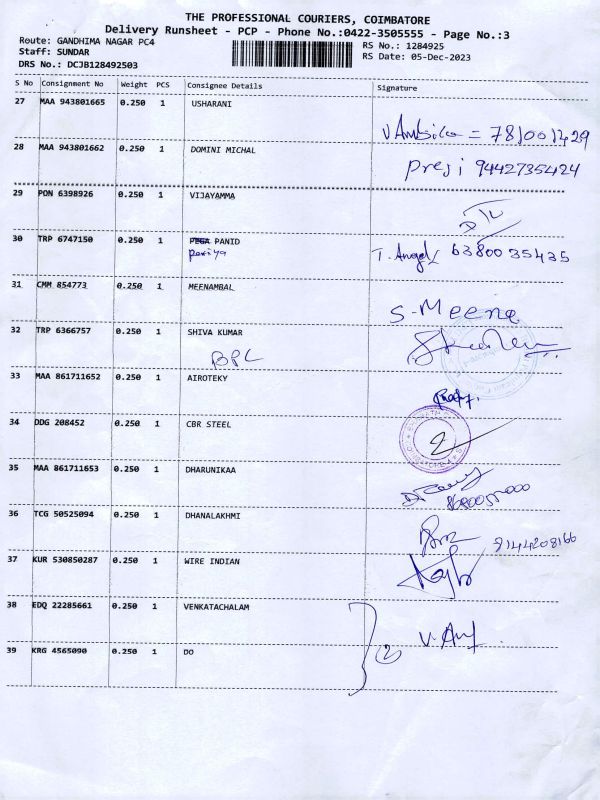 THE PROFESSIONAL COURIERS, COIMBATORE
Delivery Runsheet - PCP - Phone No.:0422-3505555 - Page No.:3
Route: GANDHIMA NAGAR PC4
RS No.: 1284925
Staff: SUNDAR
RS Date: 05-Dec-2023
DRS No.: DCJB128492503
S No Consignment No Weight PCS Consignee Details Signature
27 MAA 943801665 0.250 1 USHARANI
28 MAA 943801662 0.250 1 DOMINI MICHAL
29 PON 6398926 0.250 1 VIJAYAMMA
30 TRP 6747150 0.250 1 PANID
periya
T. Angel 6380035435
31 CMM 854773 0.250 1 MEENAMBAL
S-Meena
32 TRP 6366757 0.250 1 SHIVA KUMAR
BPL
33 MAA 861711652 0.250 1 AIROTEKY
34 DDG 208452 0.250 1 CBR STEEL
35 MAA 861711653 0.250 1 DHARUNIKAA
36 TCG 50525094 0.250 1 DHANALAKHMI
37 KUR 530850287 0.250 1 WIRE INDIAN
38 EDQ 22285661 0.250 1 VENKATACHALAM
39 KRG 4565090 0.250 1 DO
2